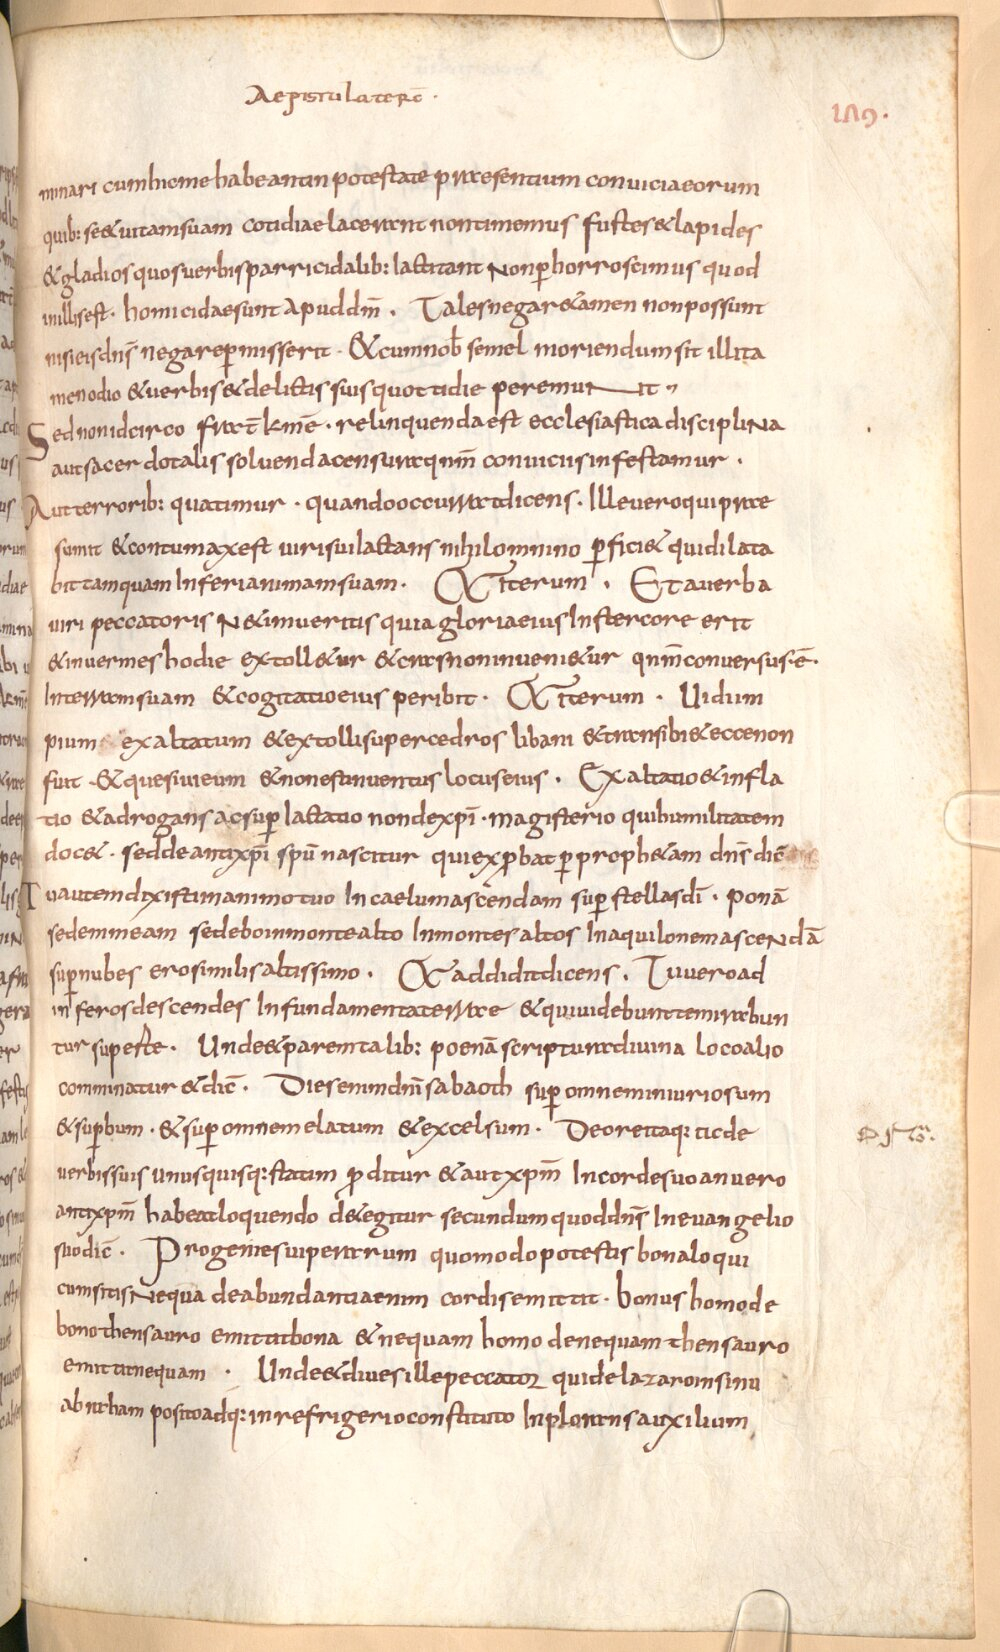 Aepistula terc̄ ·
189.
minari cum hic me habeant in potestate praesentium conviciaeorum
quib: se & vitam suam cotidiae lacerant non timemus fustes & lapides
& gladios quos verbis parricidalib: lactitant Non perhorroscimus quod
in illis est · homicidae sunt apud dm̄ . Tales negar & amen non possunt
nisi eis dns̄ negare permisserit · & cum nob̄ semel moriendum sit illi ta
men odio & verbis & delictis suis quottidie peremunt it
Sed non idcirco frat̄ kmē · relinquenda est ecclesiastica discipliNa
aut sacerdotalis solvenda censura qnm̄ conviciis infestamur .
Aut terrorib: quatimur · quando occurrat dicens . Ille vero qui prae
sumit & contumax est viri sui lactans nihil omnino perfici& qui dilata
bit tamquam Inferi animam suam . & iterum . Et a verba
viri peccatoris N& imveritis quia gloria eius In stercore erit
& in vermes hodie extoll&ur & cras non inveni&ur qnm̄ conversus ē .
In terram suam & cogitatio eius peribit . & iterum . Vid um
pium exaltatum & extolli super cedros libani & transibi & ecce non
fuit . & quesivi eum & non est inventus locus eius . Exaltatio & infla
tio & adrogans ac superlactatio non de xpī . magisterio qui humilitatem
doc& . sed de antixpī spū nascitur qui exprobat per proph&am dns̄ dic̄
Tu autem dixisti in animo tuo In caelum ascendam super stellas dī . ponā
sedem meam sedebo in monte alto In montes altos In aquilonem asceNdā
super nubes ero similis altissimo . & addidit dicens . Tu vero ad
inferos descendes In fundamenta terrae & qui videbunt te mirabun
tur super te . Unde & paremtalib: poenā scriptura divina loco alio
comminatur & dic̄ . Dies enim dnī sabaoth super omnem iniuriosum
& superbum . & super omnem elatum & excelsum . De ore itaq: tic de
verbis suis unusquisq: statim proditur & aut xpm̄ In corde suo an vero
antixpm̄ habeat loquendo det&egitur secundum quod dns̄ In evangelio
suo dic̄ . Progenies viperarum quomodo potestis bona loqui
cum sitis Nequa de abundantia enim cordis emittit . bonus homo de
bono thensauro emittit bona & nequam homo de nequam thensauro
emittit nequam . Unde & dives ille peccator qui de lazaro in sinu
abraham posito adq: in refrigerio constituto In plorans auxilium